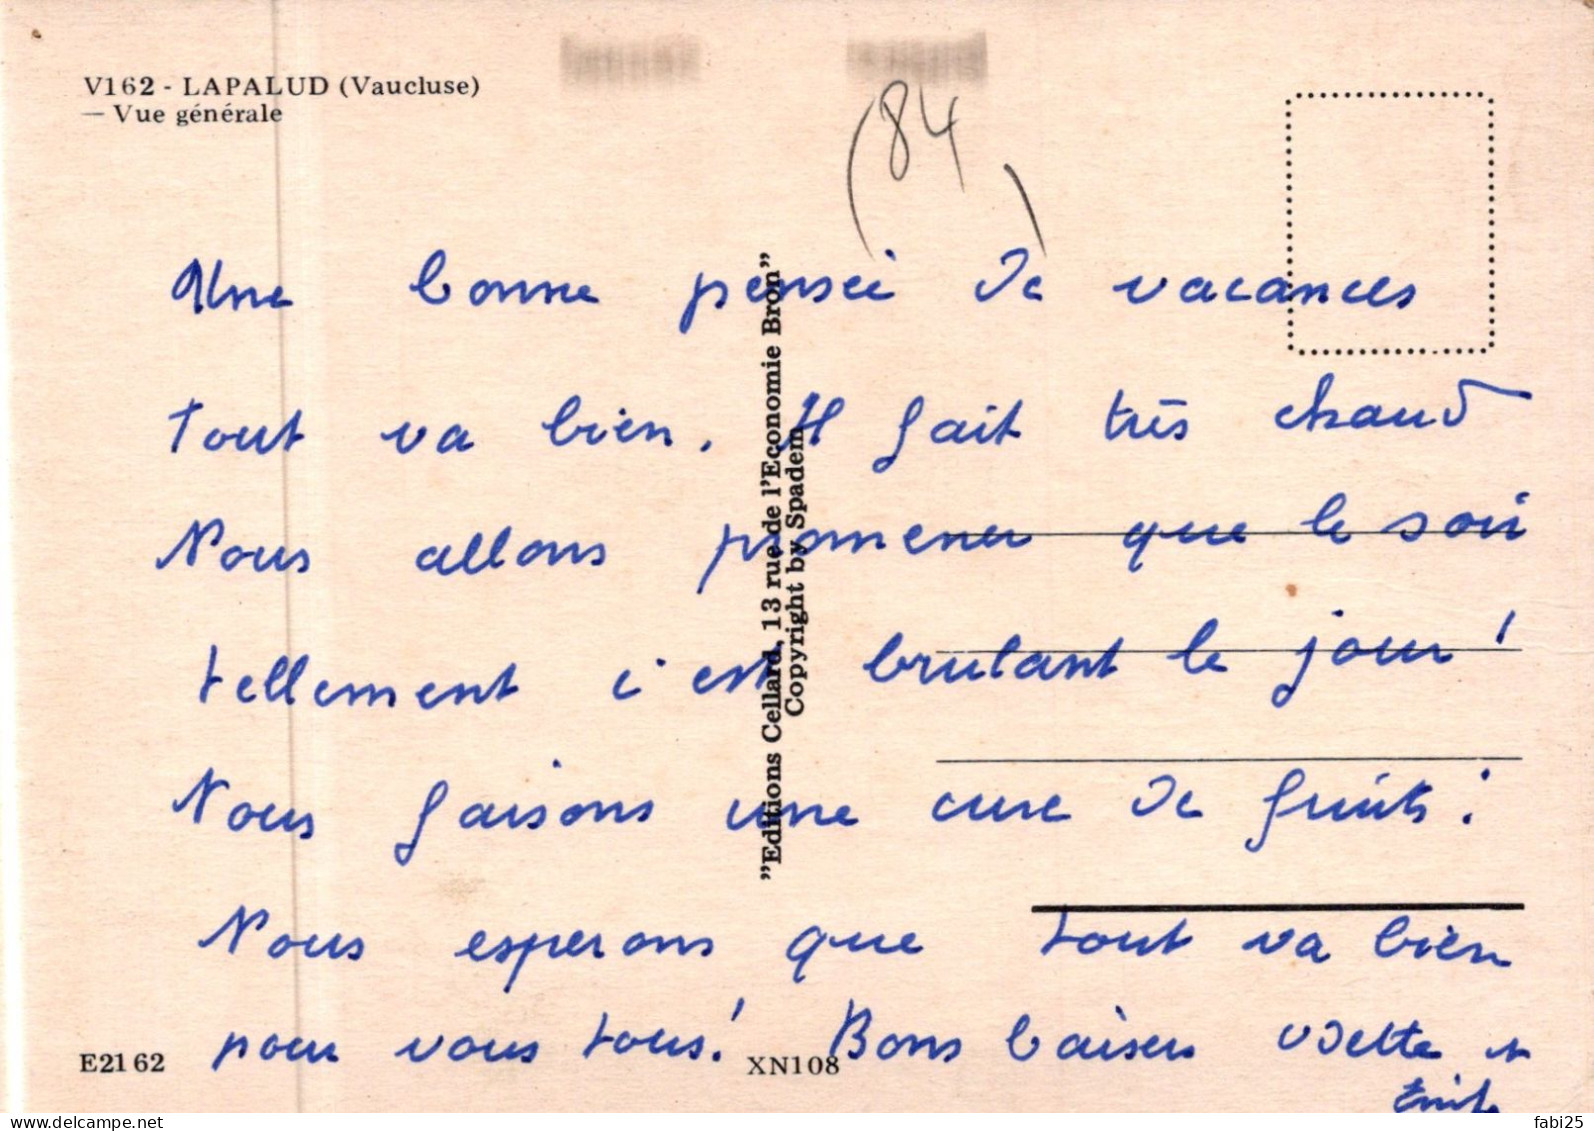 V162 - LAPALUD (Vaucluse)
— Vue générale
(84)
Une bonne pensée de vacances
Tout va bien. Il fait très chaud
Nous allons promener que le soir
tellement c'est brulant le jour!
Nous faisons une cure de fruits.
Nous esperons que tout va bien
pour vous tous! Bons baisers Odette et
Emile
"Editions Cellard, 13 rue de l'Economie Bron"
Copyright by Spadem
E2162
XN108
fabi25